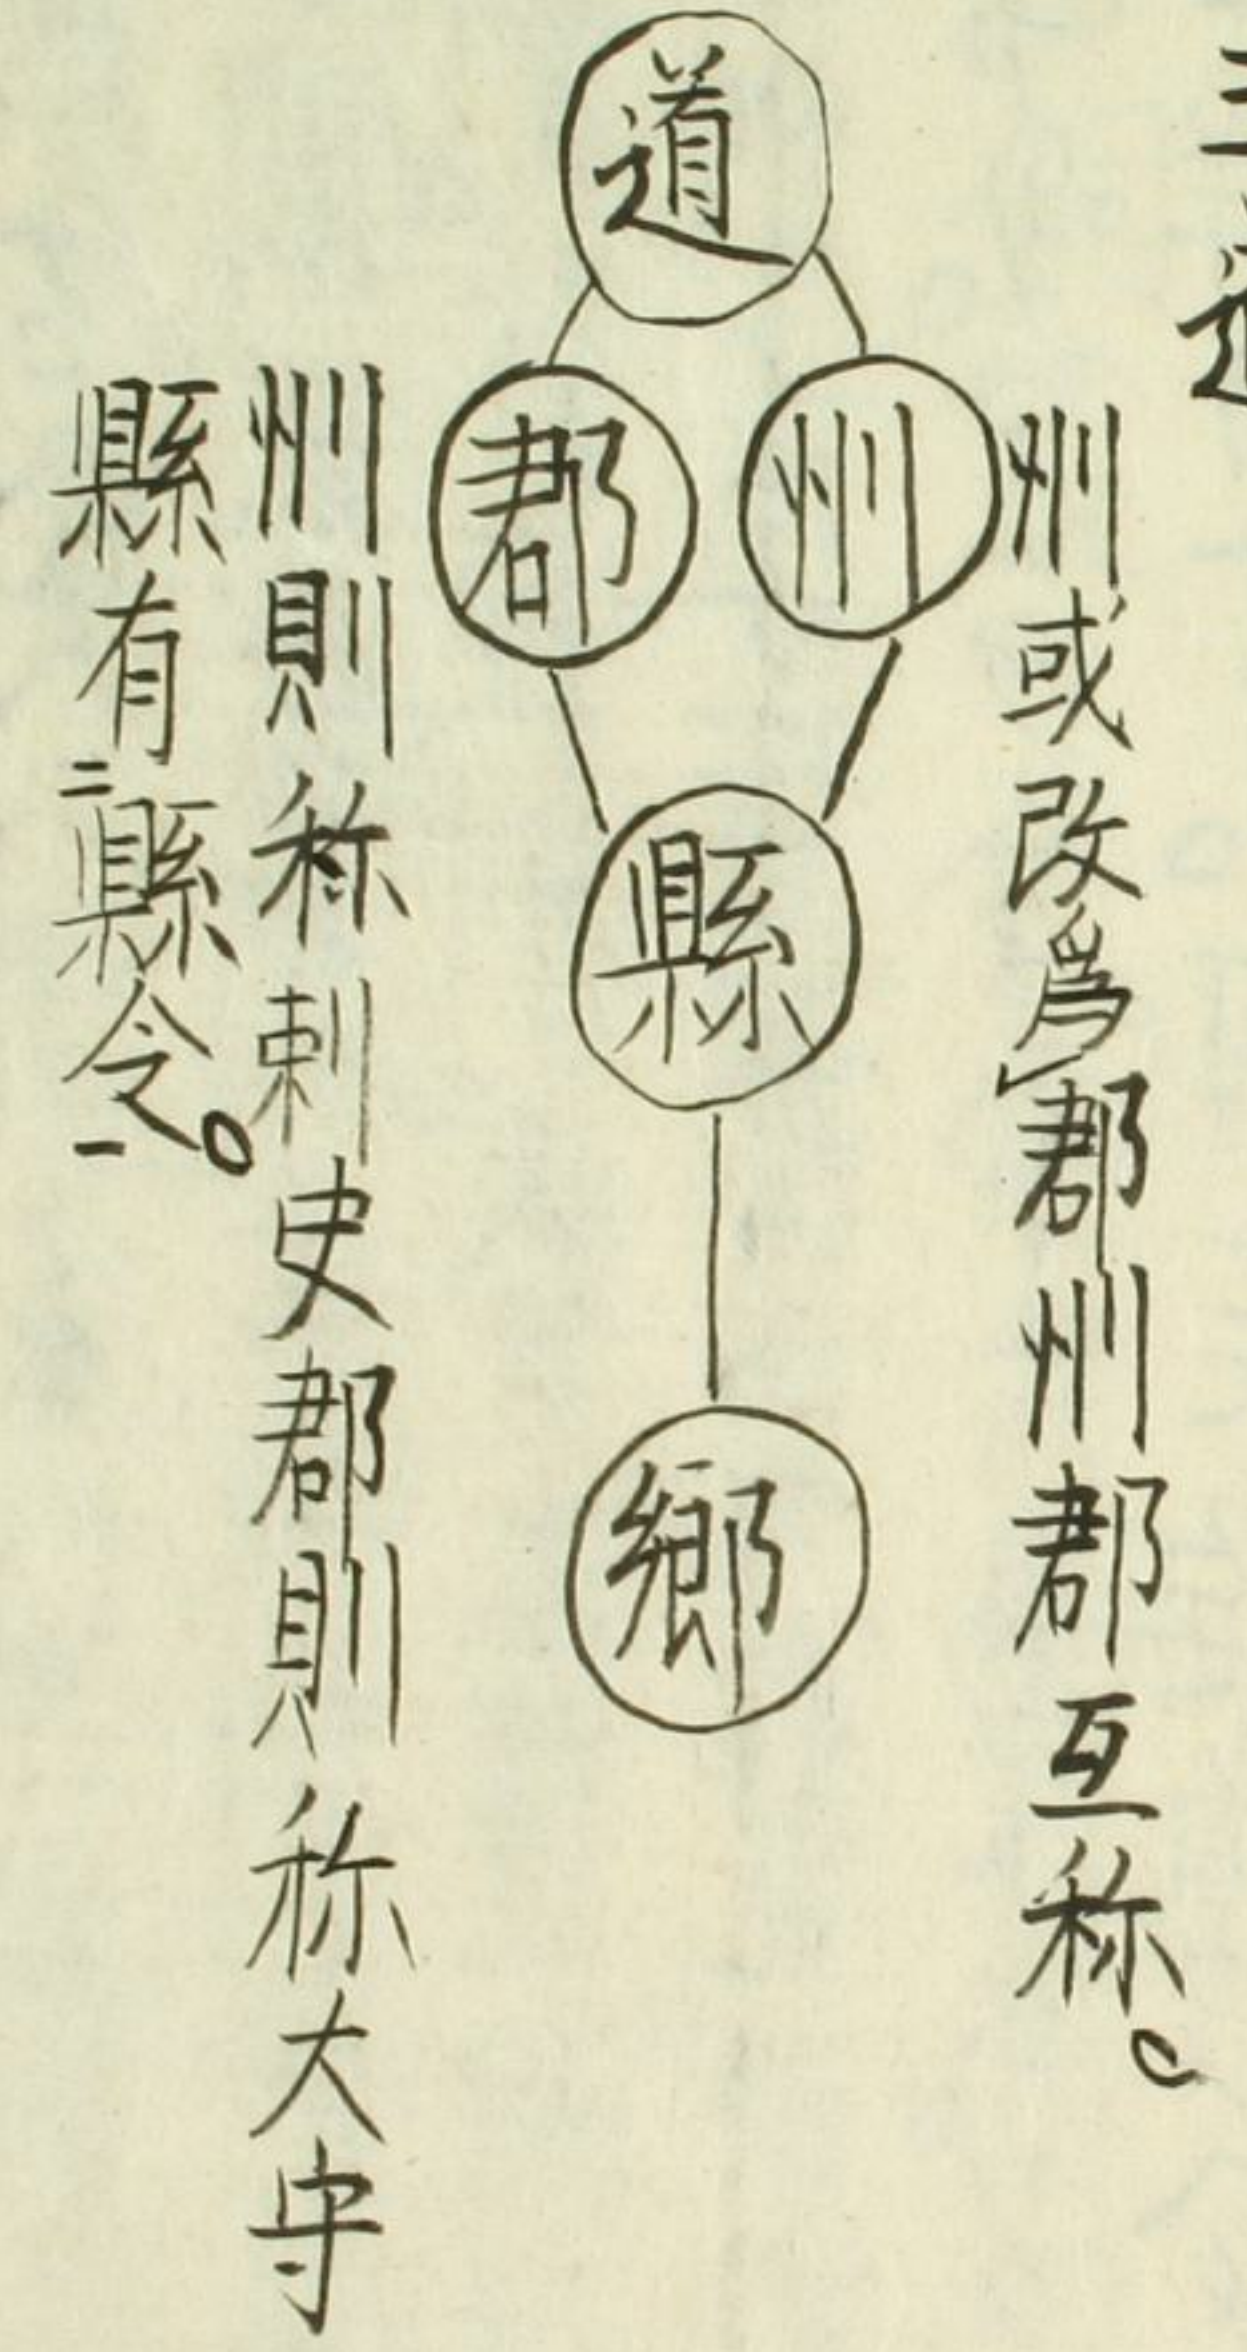 州或改爲㆑郡州郡互称。
道
州
郡
縣
鄉
州則称刺史郡則称大守
縣有㆓縣令㆒。